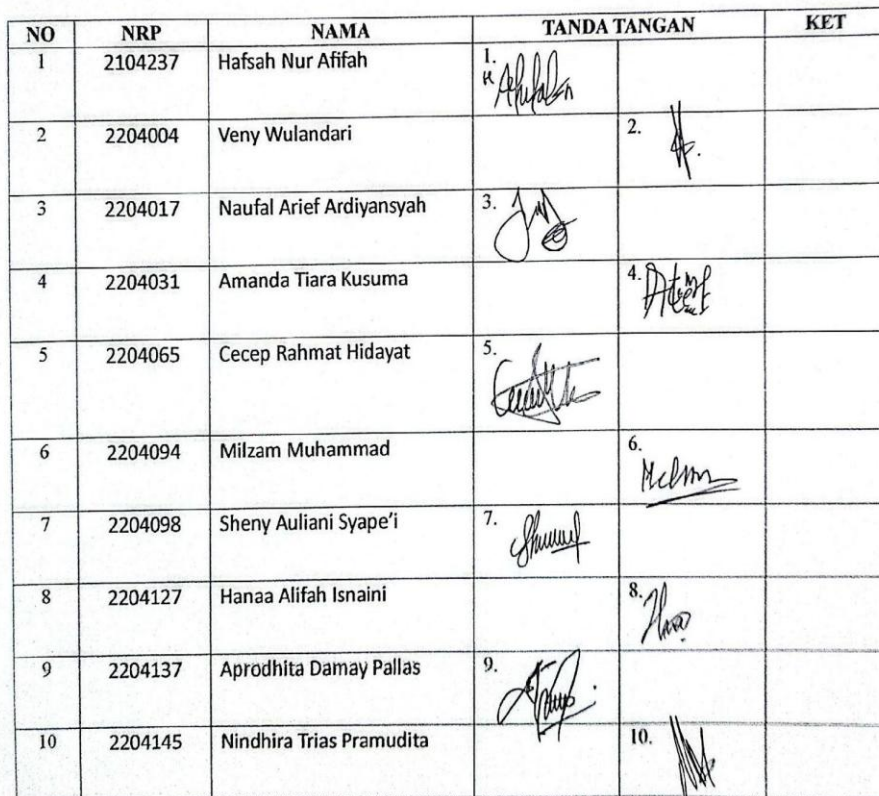 NO NRP NAMA TANDA TANGAN KET
1 2104237 Hafsah Nur Afifah 1.
2 2204004 Veny Wulandari 2.
3 2204017 Naufal Arief Ardiyansyah 3.
4 2204031 Amanda Tiara Kusuma 4.
5 2204065 Cecep Rahmat Hidayat 5.
6 2204094 Milzam Muhammad 6.
7 2204098 Sheny Auliani Syape'i 7.
8 2204127 Hanaa Alifah Isnaini 8.
9 2204137 Aprodhita Damay Pallas 9.
10 2204145 Nindhira Trias Pramudita 10.